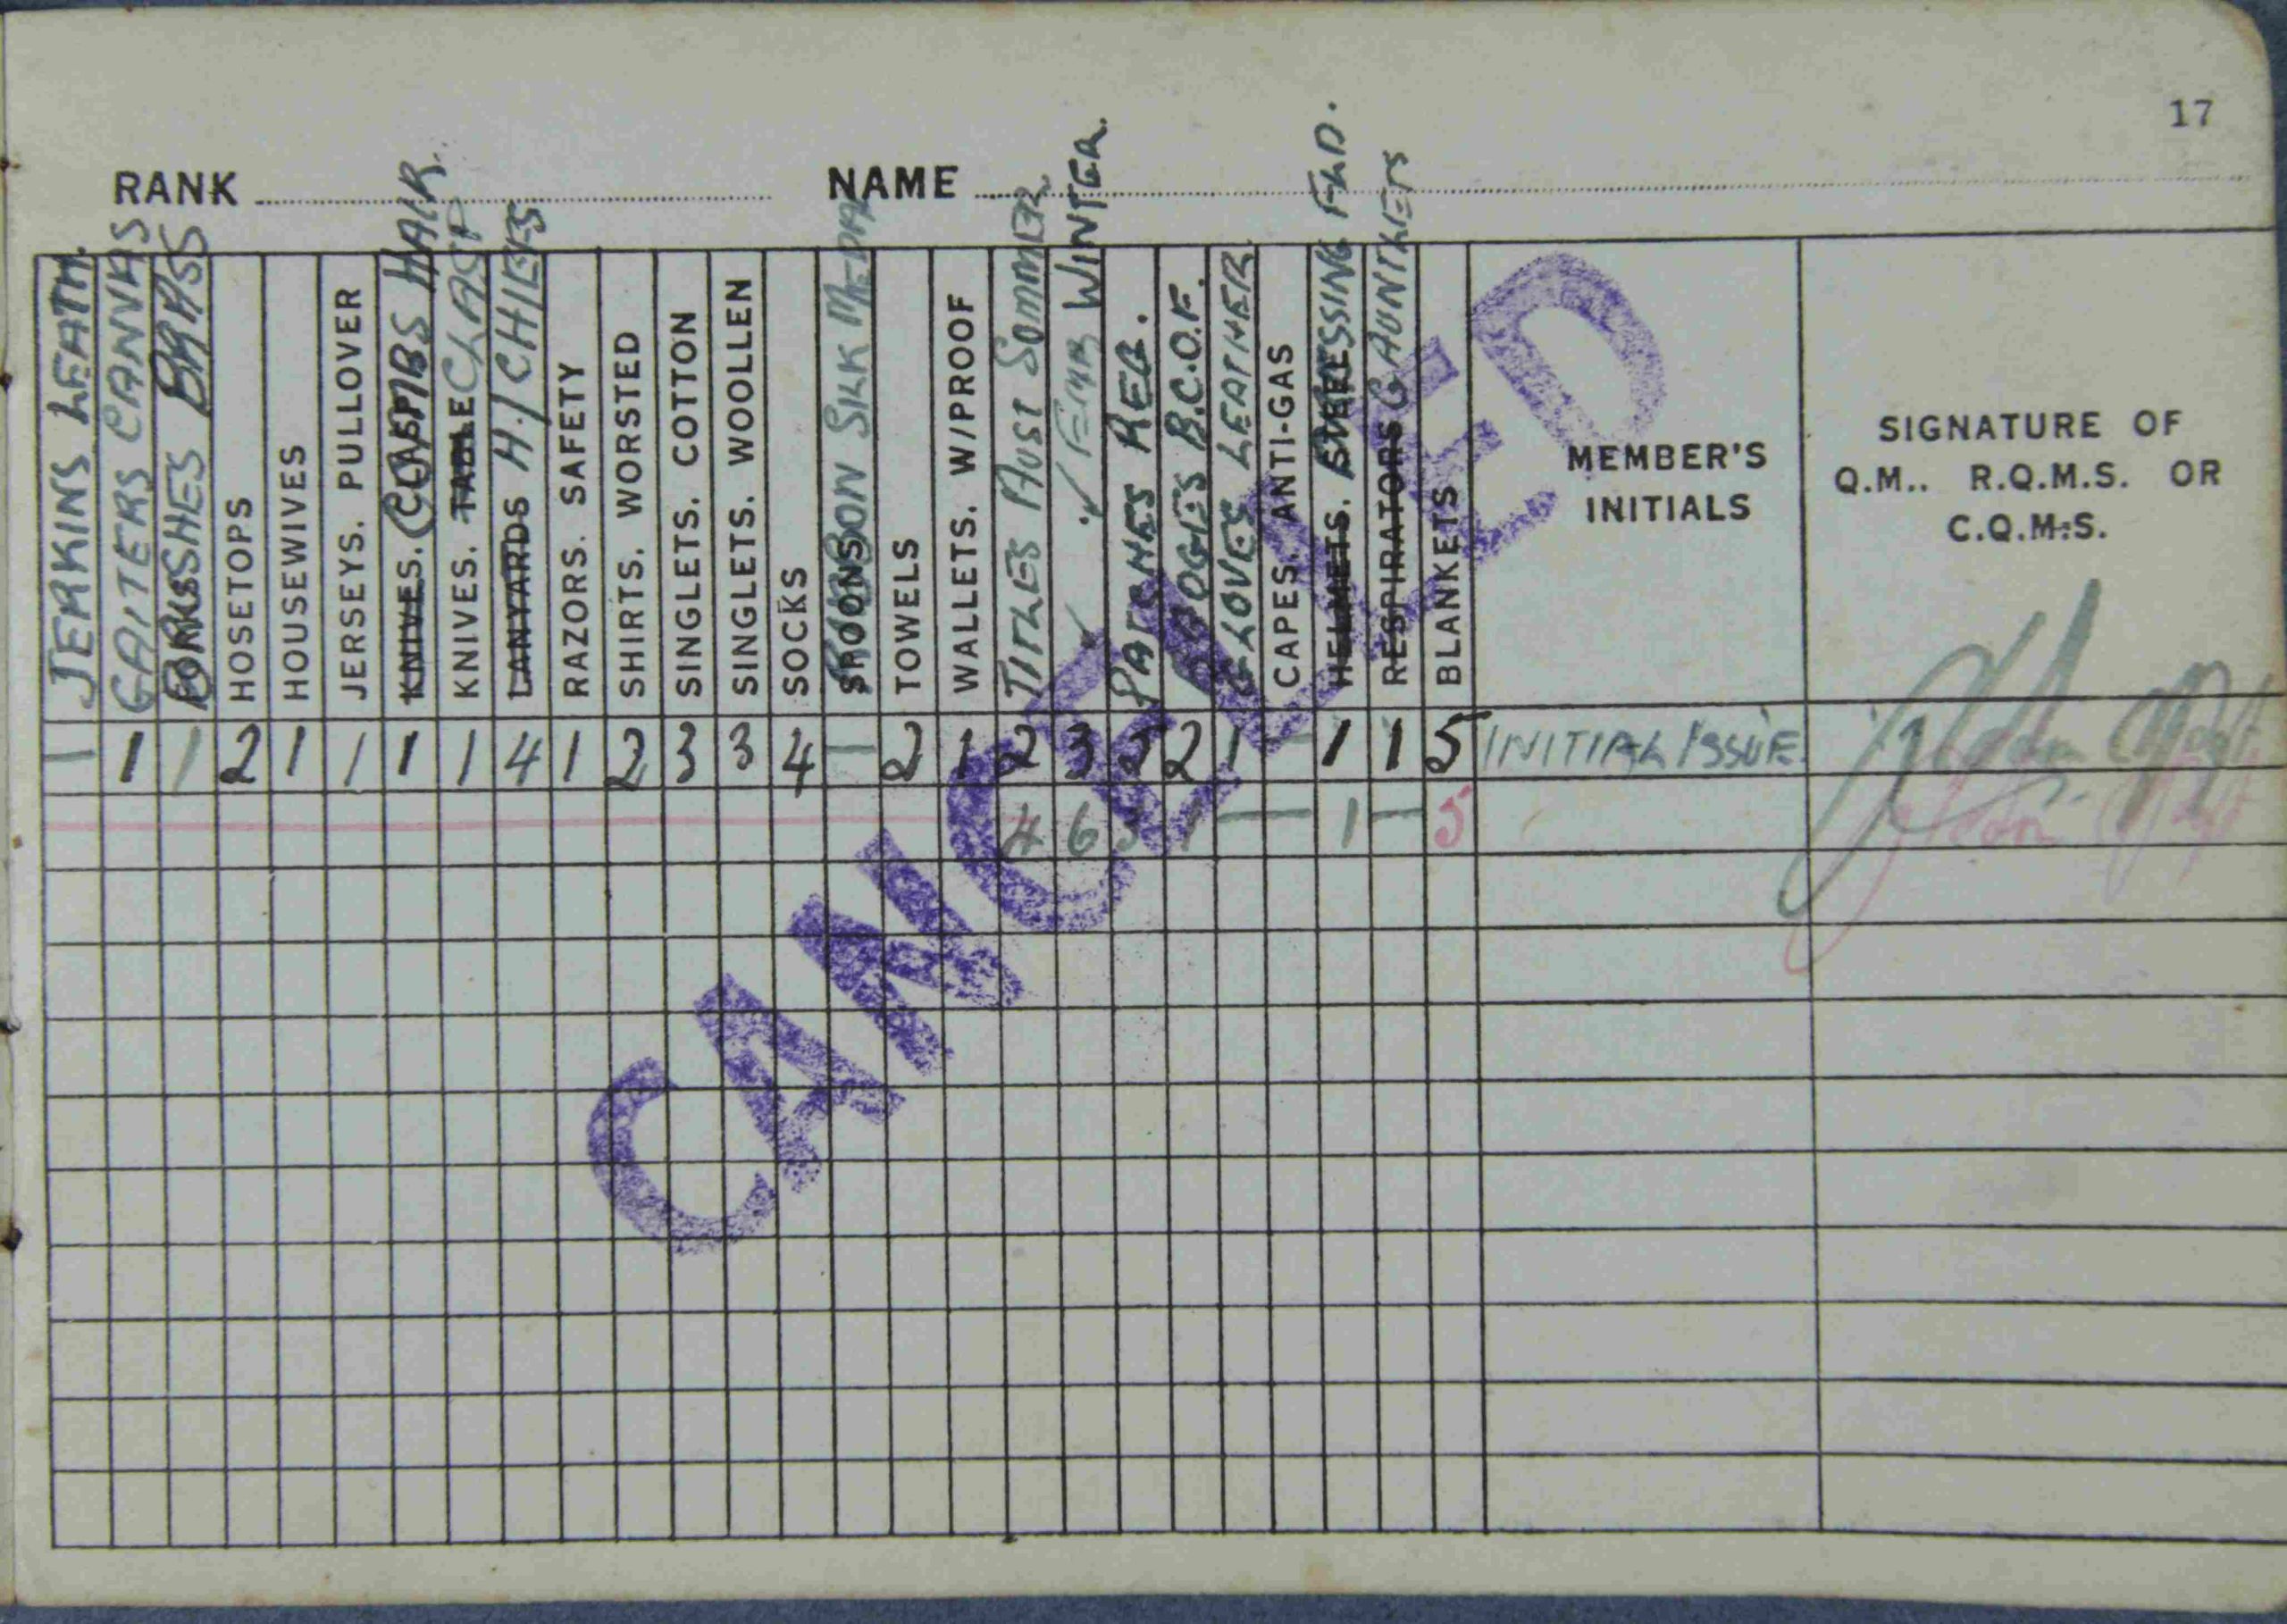 17
RANK NAME
JERKINS LEATH.
GAITERS CANVAS
FORKS BRUSHES BRASS
HOSETOPS
HOUSEWIVES
JERSEYS. PULLOVER
KNIVES. COMBS HAIR.
KNIVES. TABLE CLASP
LANYARDS H/CHIEFS
RAZORS. SAFETY
SHIRTS. WORSTED
SINGLETS. COTTON
SINGLETS. WOOLLEN
SOCKS
SPOONS RIBBON SILK MEDAL
TOWELS
WALLETS. W/PROOF
TITLES AUST SUMMER
WINTER.
PATCHES REG.
B.C.O.F.
GLOVES LEATHER
CAPES. ANTI-GAS
HELMETS. DRESSING FLD.
RESPIRATORS GAUNTLETS
BLANKETS
MEMBER'S
INITIALS
SIGNATURE OF
Q.M.. R.Q.M.S. OR
C.Q.M.S.
1 1 1 2 1 1 1 1 4 1 2 3 3 4 — 2 1 2 3 2 2 1 — 1 1 5 INITIAL ISSUE.
4 6 1 — 1 — 5
CANCELLED